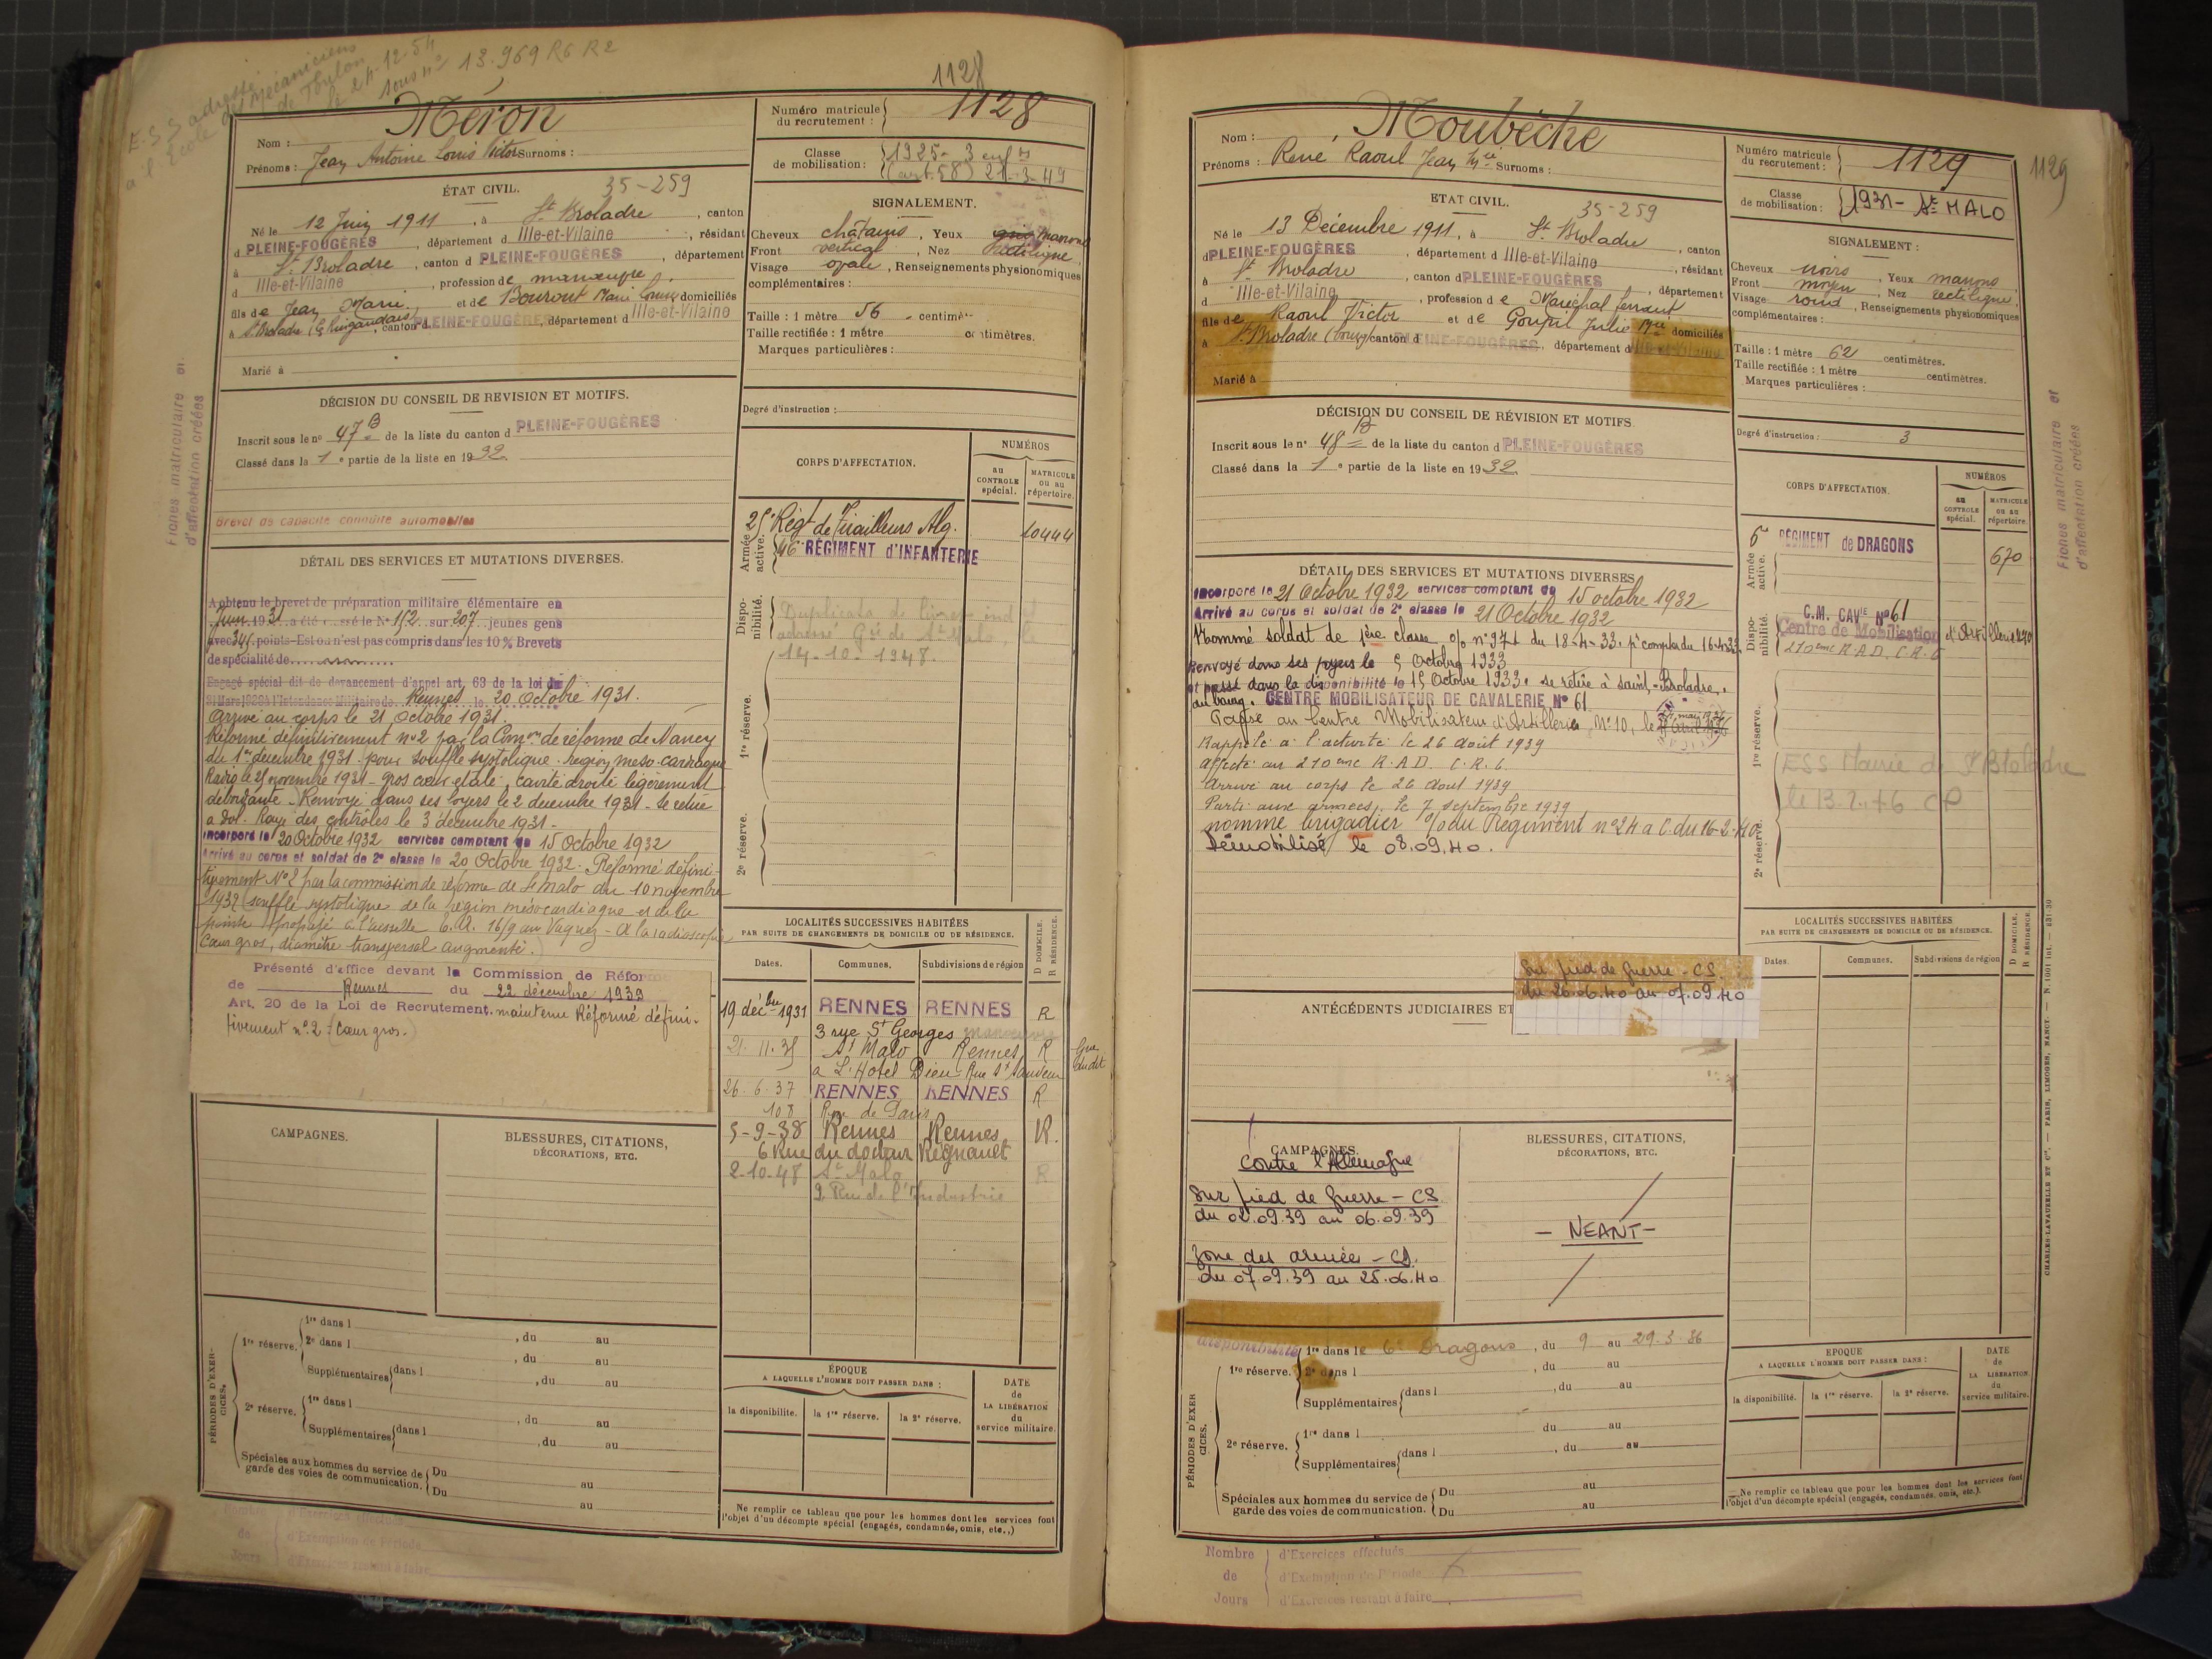 E.S.S adressé
à l'Ecole des Mécaniciens
de Toulon
le 24.12.54
sous n° 13.969 R6 R2
1128
Méron
Nom :
Prénoms : Jean Antoine Louis Victor Surnoms :
ÉTAT CIVIL.
35-259
Né le 12 Juin 1911, à St Broladre, canton
d PLEINE-FOUGÈRES, département d Ille-et-Vilaine, résidant
à St Broladre, canton d PLEINE-FOUGÈRES, département
d Ille-et-Vilaine, profession de manœuvre,
fils de Jean Marie et de Bourout Marie Louise domiciliés
à St Broladre, canton d PLEINE-FOUGÈRES, département d Ille-et-Vilaine
Marié à
Numéro matricule du recrutement : 1128
Classe de mobilisation : 1925 - 3 enfts
(art. 58) 21-3-49
SIGNALEMENT.
Cheveux châtains, Yeux gris marrons
Front vertical, Nez rectiligne,
Visage ovale, Renseignements physionomiques
complémentaires :
Taille : 1 mètre 56 centimètres.
Taille rectifiée : 1 mètre centimètres.
Marques particulières :
Degré d'instruction :
DÉCISION DU CONSEIL DE REVISION ET MOTIFS.
Inscrit sous le n° 47 B de la liste du canton d PLEINE-FOUGÈRES
Classé dans la 1e partie de la liste en 1932
Brevet de capacité conduite automobiles
Fiches matriculaire et
d'affectation créées
CORPS D'AFFECTATION.
NUMÉROS
au CONTROLE spécial.
MATRICULE ou au répertoire.
Armée active.
25e Régt de Tirailleurs Alg. 10444
46e RÉGIMENT d'INFANTERIE
Disponibilité.
Duplicata de livret ind
adressé Gie de St Malo le
14-10-1948.
1re réserve.
2e réserve.
DÉTAIL DES SERVICES ET MUTATIONS DIVERSES.
A obtenu le brevet de préparation militaire élémentaire en
Juin 1931 a été classé le N° 152 sur 207 jeunes gens
avec 345 points - Est ou n'est pas compris dans les 10 % Brevets
de spécialité de
Engagé spécial dit de devancement d'appel art. 63 de la loi du
31 Mars 1928 à l'Intendance Militaire de Rennes le 20 octobre 1931.
Arrivé au corps le 21 octobre 1931.
Réformé définitivement n° 2 par la Comon de réforme de Nancy
du 1er décembre 1931. pour souffle systolique. région méso-cardiaque
Radio le 25 novembre 1931 - gros cœur étalé, cavité droite légèrement
débordante. Renvoyé dans ses foyers le 2 décembre 1931 - Se retire
à Dol. Rayé des contrôles le 3 décembre 1931 -
Incorporé le 20 Octobre 1932 services comptant du 15 Octobre 1932
Arrivé au corps et soldat de 2e classe le 20 Octobre 1932. Réformé défini-
tivement N° 2 par la commission de réforme de St Malo du 10 novembre
1932 (souffle systolique de la région mésocardiaque et de la
pointe propagé à l'aisselle T.A. 16/9 au Vaquez - A la radioscopie
cœur gros, diamètre transversal augmenté.)
Présenté d'office devant la Commission de Réforme
de Rennes du 22 décembre 1939
Art. 20 de la Loi de Recrutement. maintenu Réformé défini-
tivement n° 2 - (Cœur gros.)
LOCALITÉS SUCCESSIVES HABITÉES
PAR SUITE DE CHANGEMENTS DE DOMICILE OU DE RÉSIDENCE.
D DOMICILE.
R RÉSIDENCE.
Dates. Communes. Subdivisions de région
19 décbre 1931 RENNES RENNES R
3 rue St Georges manœuvre
21.11.35 St Malo Rennes R
à L'Hôtel Dieu Rue St Sauveur
26.6.37 RENNES RENNES R
108 Rue de Paris
5-9-38 Rennes Rennes R.
6 Rue du docteur Régnault
2-10-48 St Malo R
9 Rue de l'Industrie
CAMPAGNES.
BLESSURES, CITATIONS,
DÉCORATIONS, ETC.
PÉRIODES D'EXERCICES.
1re réserve. 1re dans l , du au
2e dans l , du au
Supplémentaires dans l , du au
2e réserve. 1re dans l , du au
Supplémentaires dans l , du au
Spéciales aux hommes du service de
garde des voies de communication. Du au
Du au
ÉPOQUE
A LAQUELLE L'HOMME DOIT PASSER DANS :
la disponibilité. la 1re réserve. la 2e réserve.
DATE de LA LIBÉRATION du service militaire.
Ne remplir ce tableau que pour les hommes dont les services font
l'objet d'un décompte spécial (engagés, condamnés, omis, etc.,)
Nombre de Jours
d'Exercices effectués
d'Exemption de Période
d'Exercices restant à faire
Moubêche
Nom :
Prénoms : René Raoul Jean Mie Surnoms :
ETAT CIVIL.
35-259
Né le 13 Décembre 1911, à St Broladre, canton
d PLEINE-FOUGÈRES, département d Ille-et-Vilaine, résidant
à St Broladre, canton d PLEINE-FOUGÈRES, département
d Ille-et-Vilaine, profession de Maréchal ferrant
fils de Raoul Victor et de Goupil Julie Mie domiciliés
à St Broladre (bourg) canton d PLEINE-FOUGÈRES, département d Ille-et-Vilaine
Marié à
Numéro matricule du recrutement : 1129
1129
Classe de mobilisation : 1931 - St MALO
SIGNALEMENT :
Cheveux noirs, Yeux marrons,
Front moyen, Nez rectiligne,
Visage rond, Renseignements physionomiques
complémentaires :
Taille : 1 mètre 62 centimètres.
Taille rectifiée : 1 mètre centimètres.
Marques particulières :
Degré d'instruction : 3
DÉCISION DU CONSEIL DE RÉVISION ET MOTIFS.
Inscrit sous le n° 48 B de la liste du canton d PLEINE-FOUGÈRES
Classé dans la 1e partie de la liste en 1932
Fiches matriculaire et
d'affectation créées
CORPS D'AFFECTATION.
NUMÉROS
au CONTROLE spécial.
MATRICULE ou au répertoire.
Armée active.
6e RÉGIMENT de DRAGONS 670
Disponibilité.
C.M. CAVIE N° 61
Centre de Mobilisation d'Artillerie N°10
210ème R.A.D. C.R.6
1re réserve.
ESS Mairie de St Broladre
le 13.2.46 CP
2e réserve.
DÉTAIL DES SERVICES ET MUTATIONS DIVERSES
Incorporé le 21 Octobre 1932 services comptant du 15 octobre 1932
Arrivé au corps et soldat de 2e classe le 21 Octobre 1932
Nommé soldat de 1ère classe o/o n° 971 du 18-4-33. pr compter du 16-4-33.
Renvoyé dans ses foyers le 5 Octobre 1933
et passé dans la disponibilité le 15 Octobre 1933. se retire à Saint-Broladre,
au bourg. CENTRE MOBILISATEUR DE CAVALERIE N° 61
Passé au Centre Mobilisateur d'Artillerie N° 10, le
Rappelé à l'activité le 26 août 1939
affecté au 210ème R.A.D. C.R.6.
Arrivé au corps le 26 août 1939
Parti aux armées, le 7 septembre 1939
nommé brigadier o/o du Régiment n° 24 a C. du 16-2-40.
Démobilisé le 08.09.40.
ANTÉCÉDENTS JUDICIAIRES ET
Sur pied de guerre - CS.
du 26.06.40 au 07.09.40
LOCALITÉS SUCCESSIVES HABITÉES
PAR SUITE DE CHANGEMENTS DE DOMICILE OU DE RÉSIDENCE.
D DOMICILE.
R RÉSIDENCE.
Dates. Communes. Subdivisions de région
CAMPAGNES.
Contre l'Allemagne
Sur pied de guerre - CS
du 02.09.39 au 06.09.39
Zone des armées - CD.
du 07.09.39 au 25.06.40
BLESSURES, CITATIONS,
DÉCORATIONS, ETC.
- NEANT -
PÉRIODES D'EXERCICES.
disponibilité 1re dans le 6e Dragons, du 9 au 29.3.36
1re réserve. 2e dans l , du au
Supplémentaires dans l , du au
2e réserve. 1re dans l du au
Supplémentaires dans l , du au
Spéciales aux hommes du service de
garde des voies de communication. Du au
Du au
EPOQUE
A LAQUELLE L'HOMME DOIT PASSER DANS :
la disponibilité. la 1re réserve. la 2e réserve.
DATE de LA LIBÉRATION du service militaire.
Ne remplir ce tableau que pour les hommes dont les services font
l'objet d'un décompte spécial (engagés, condamnés, omis, etc.).
Nombre de Jours
d'Exercices effectués
d'Exemption de Période
d'Exercices restant à faire
CHARLES-LAVAUZELLE ET Cie. — PARIS, LIMOGES, NANCY. — N. 1001 int. — 831-30